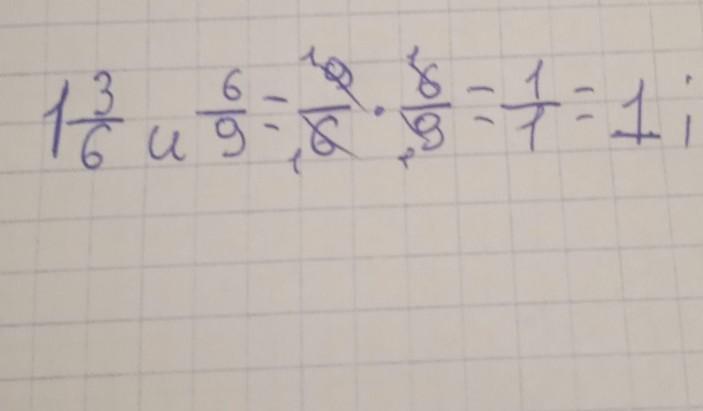 1 3/6 и 6/9 = 9/6 · 6/9 = 1/1 = 1;